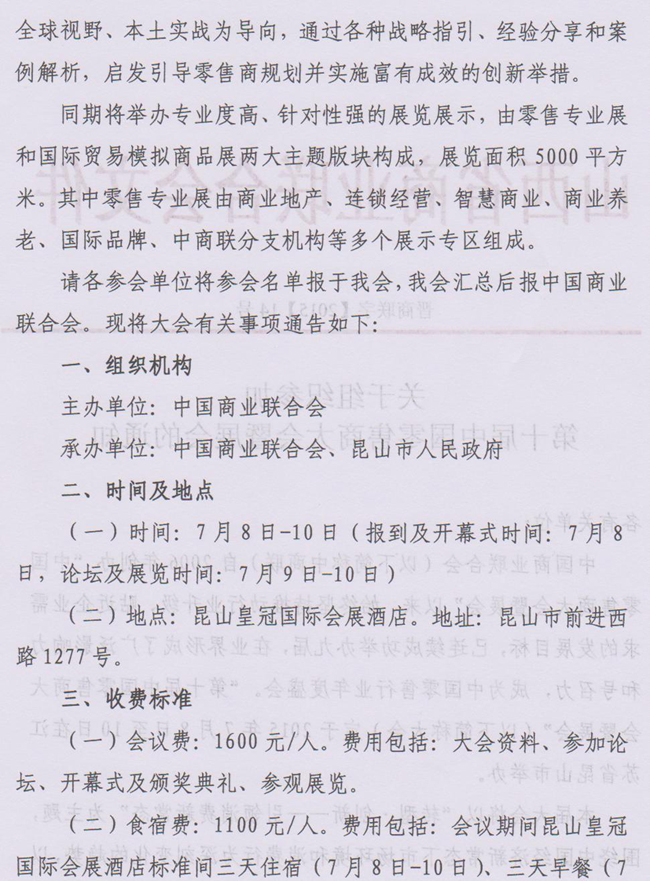 全球视野、本土实战为导向，通过各种战略指引、经验分享和案
例解析，启发引导零售商规划并实施富有成效的创新举措。
同期将举办专业度高、针对性强的展览展示，由零售专业展
和国际贸易模拟商品展两大主题版块构成，展览面积 5000 平方
米。其中零售专业展由商业地产、连锁经营、智慧商业、商业养
老、国际品牌、中商联分支机构等多个展示专区组成。
请各参会单位将参会名单报于我会，我会汇总后报中国商业
联合会。现将大会有关事项通告如下：
一、组织机构
主办单位：中国商业联合会
承办单位：中国商业联合会、昆山市人民政府
二、时间及地点
（一）时间：7 月 8 日-10 日（报到及开幕式时间：7 月 8
日，论坛及展览时间：7 月 9 日-10 日）
（二）地点：昆山皇冠国际会展酒店。地址：昆山市前进西
路 1277 号。
三、收费标准
（一）会议费：1600 元/人。费用包括：大会资料、参加论
坛、开幕式及颁奖典礼、参观展览。
（二）食宿费：1100 元/人。费用包括：会议期间昆山皇冠
国际会展酒店标准间三天住宿（7 月 8 日-10 日）、三天早餐（7